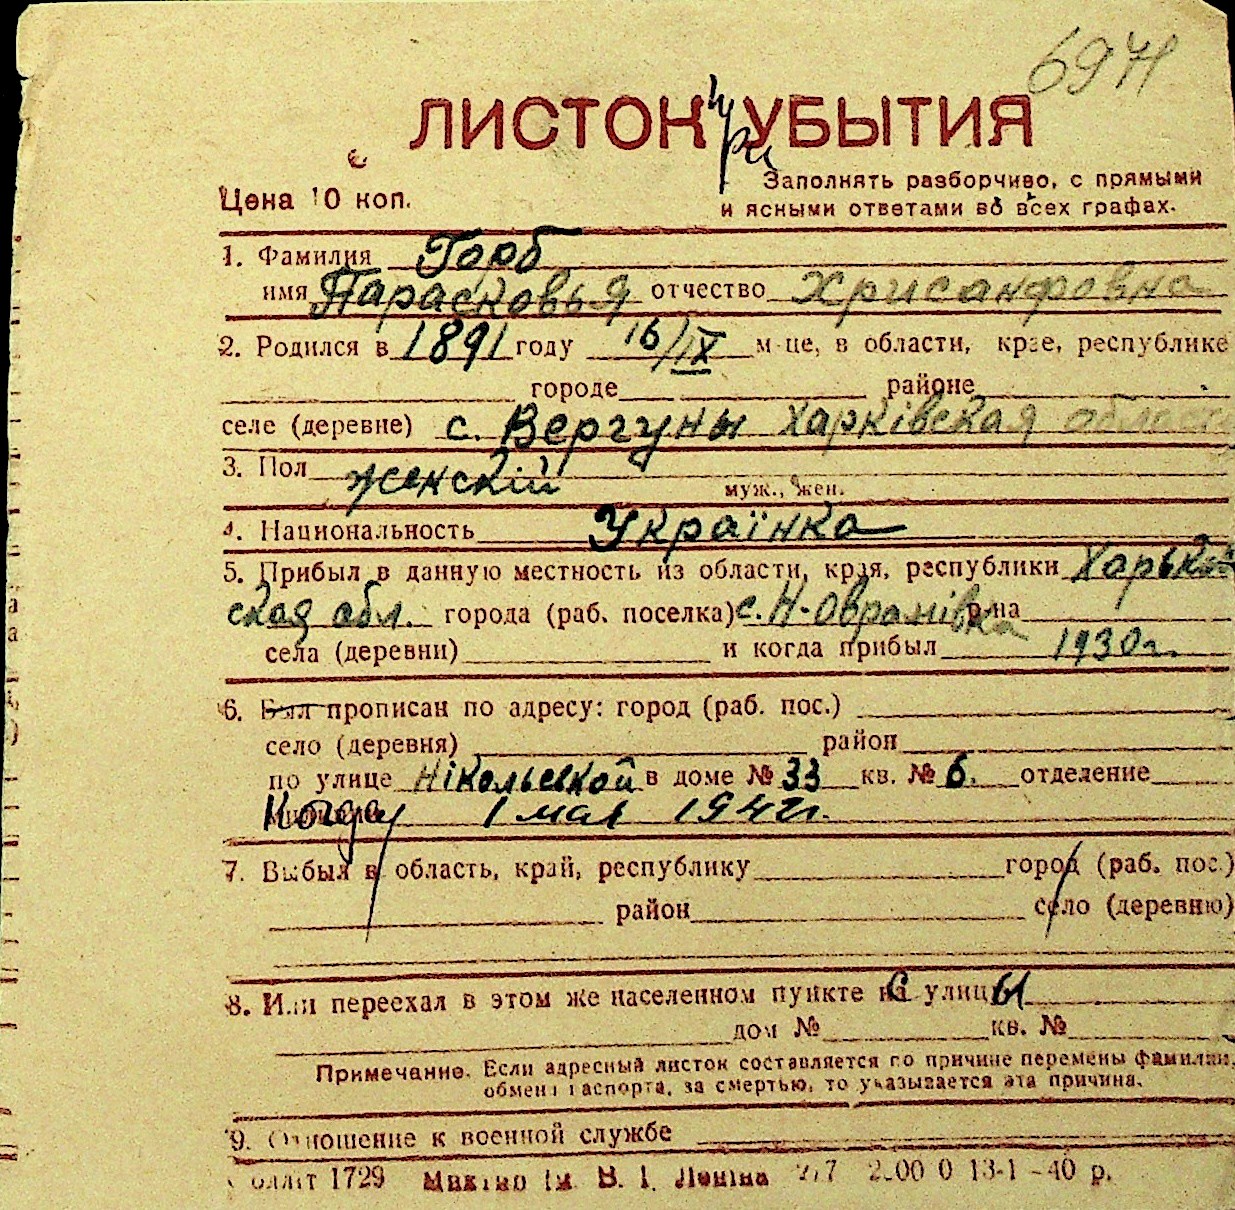 6971
ЛИСТОК при УБЫТИЯ
Цена 10 коп.
Заполнять разборчиво, с прямыми
и ясными ответами во всех графах.
1. Фамилия Горб
имя Парасковья отчество Хрисанфовна
2. Родился в 1891 году 16/IX м-це, в области, крае, республике
городе районе
селе (деревне) с. Вергуны Харківская области
3. Пол женскій муж., жен.
4. Национальность Українка
5. Прибыл в данную местность из области, края, республики Харьков
ская обл. города (раб. поселка) с. Н-Оврамівка р-на
села (деревни) и когда прибыл 1930 г.
6. Был прописан по адресу: город (раб. пос.)
село (деревня) район
по улице Нікольской в доме № 33 кв. № 6. отделение
Когда 1 мая 1942 г.
7. Выбыл в область, край, республику город (раб. пос.)
район село (деревню)
8. Или переехал в этом же населенном пункте с улицы
дом № кв. №
Примечание. Если адресный листок составляется по причине перемены фамилии,
обмена паспорта, за смертью, то указывается эта причина.
9. Отношение к военной службе
1729 ім. В. І. Леніна 13-1-40 р.